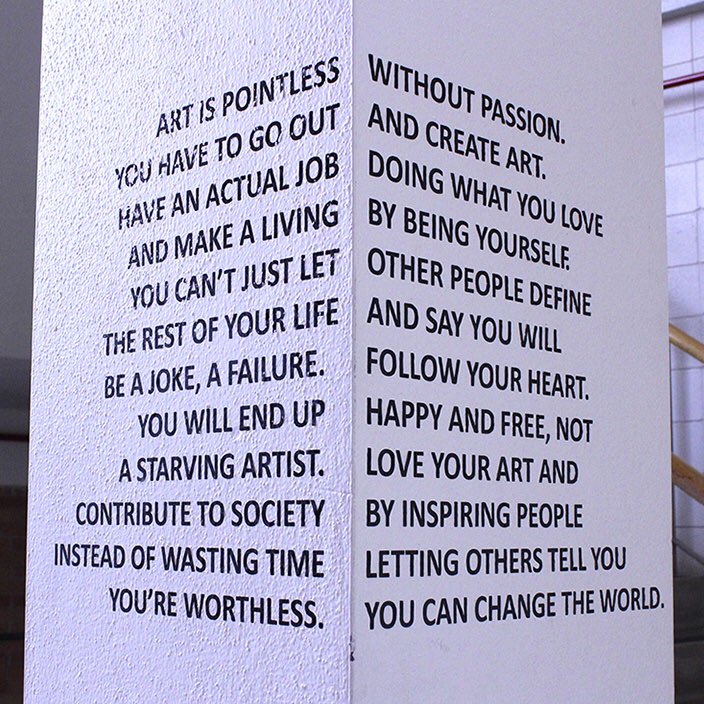 ART IS POINTLESS WITHOUT PASSION.
YOU HAVE TO GO OUT AND CREATE ART.
HAVE AN ACTUAL JOB DOING WHAT YOU LOVE
AND MAKE A LIVING BY BEING YOURSELF.
YOU CAN'T JUST LET OTHER PEOPLE DEFINE
THE REST OF YOUR LIFE AND SAY YOU WILL
BE A JOKE, A FAILURE. FOLLOW YOUR HEART.
YOU WILL END UP HAPPY AND FREE, NOT
A STARVING ARTIST. LOVE YOUR ART AND
CONTRIBUTE TO SOCIETY BY INSPIRING PEOPLE
INSTEAD OF WASTING TIME LETTING OTHERS TELL YOU
YOU'RE WORTHLESS. YOU CAN CHANGE THE WORLD.